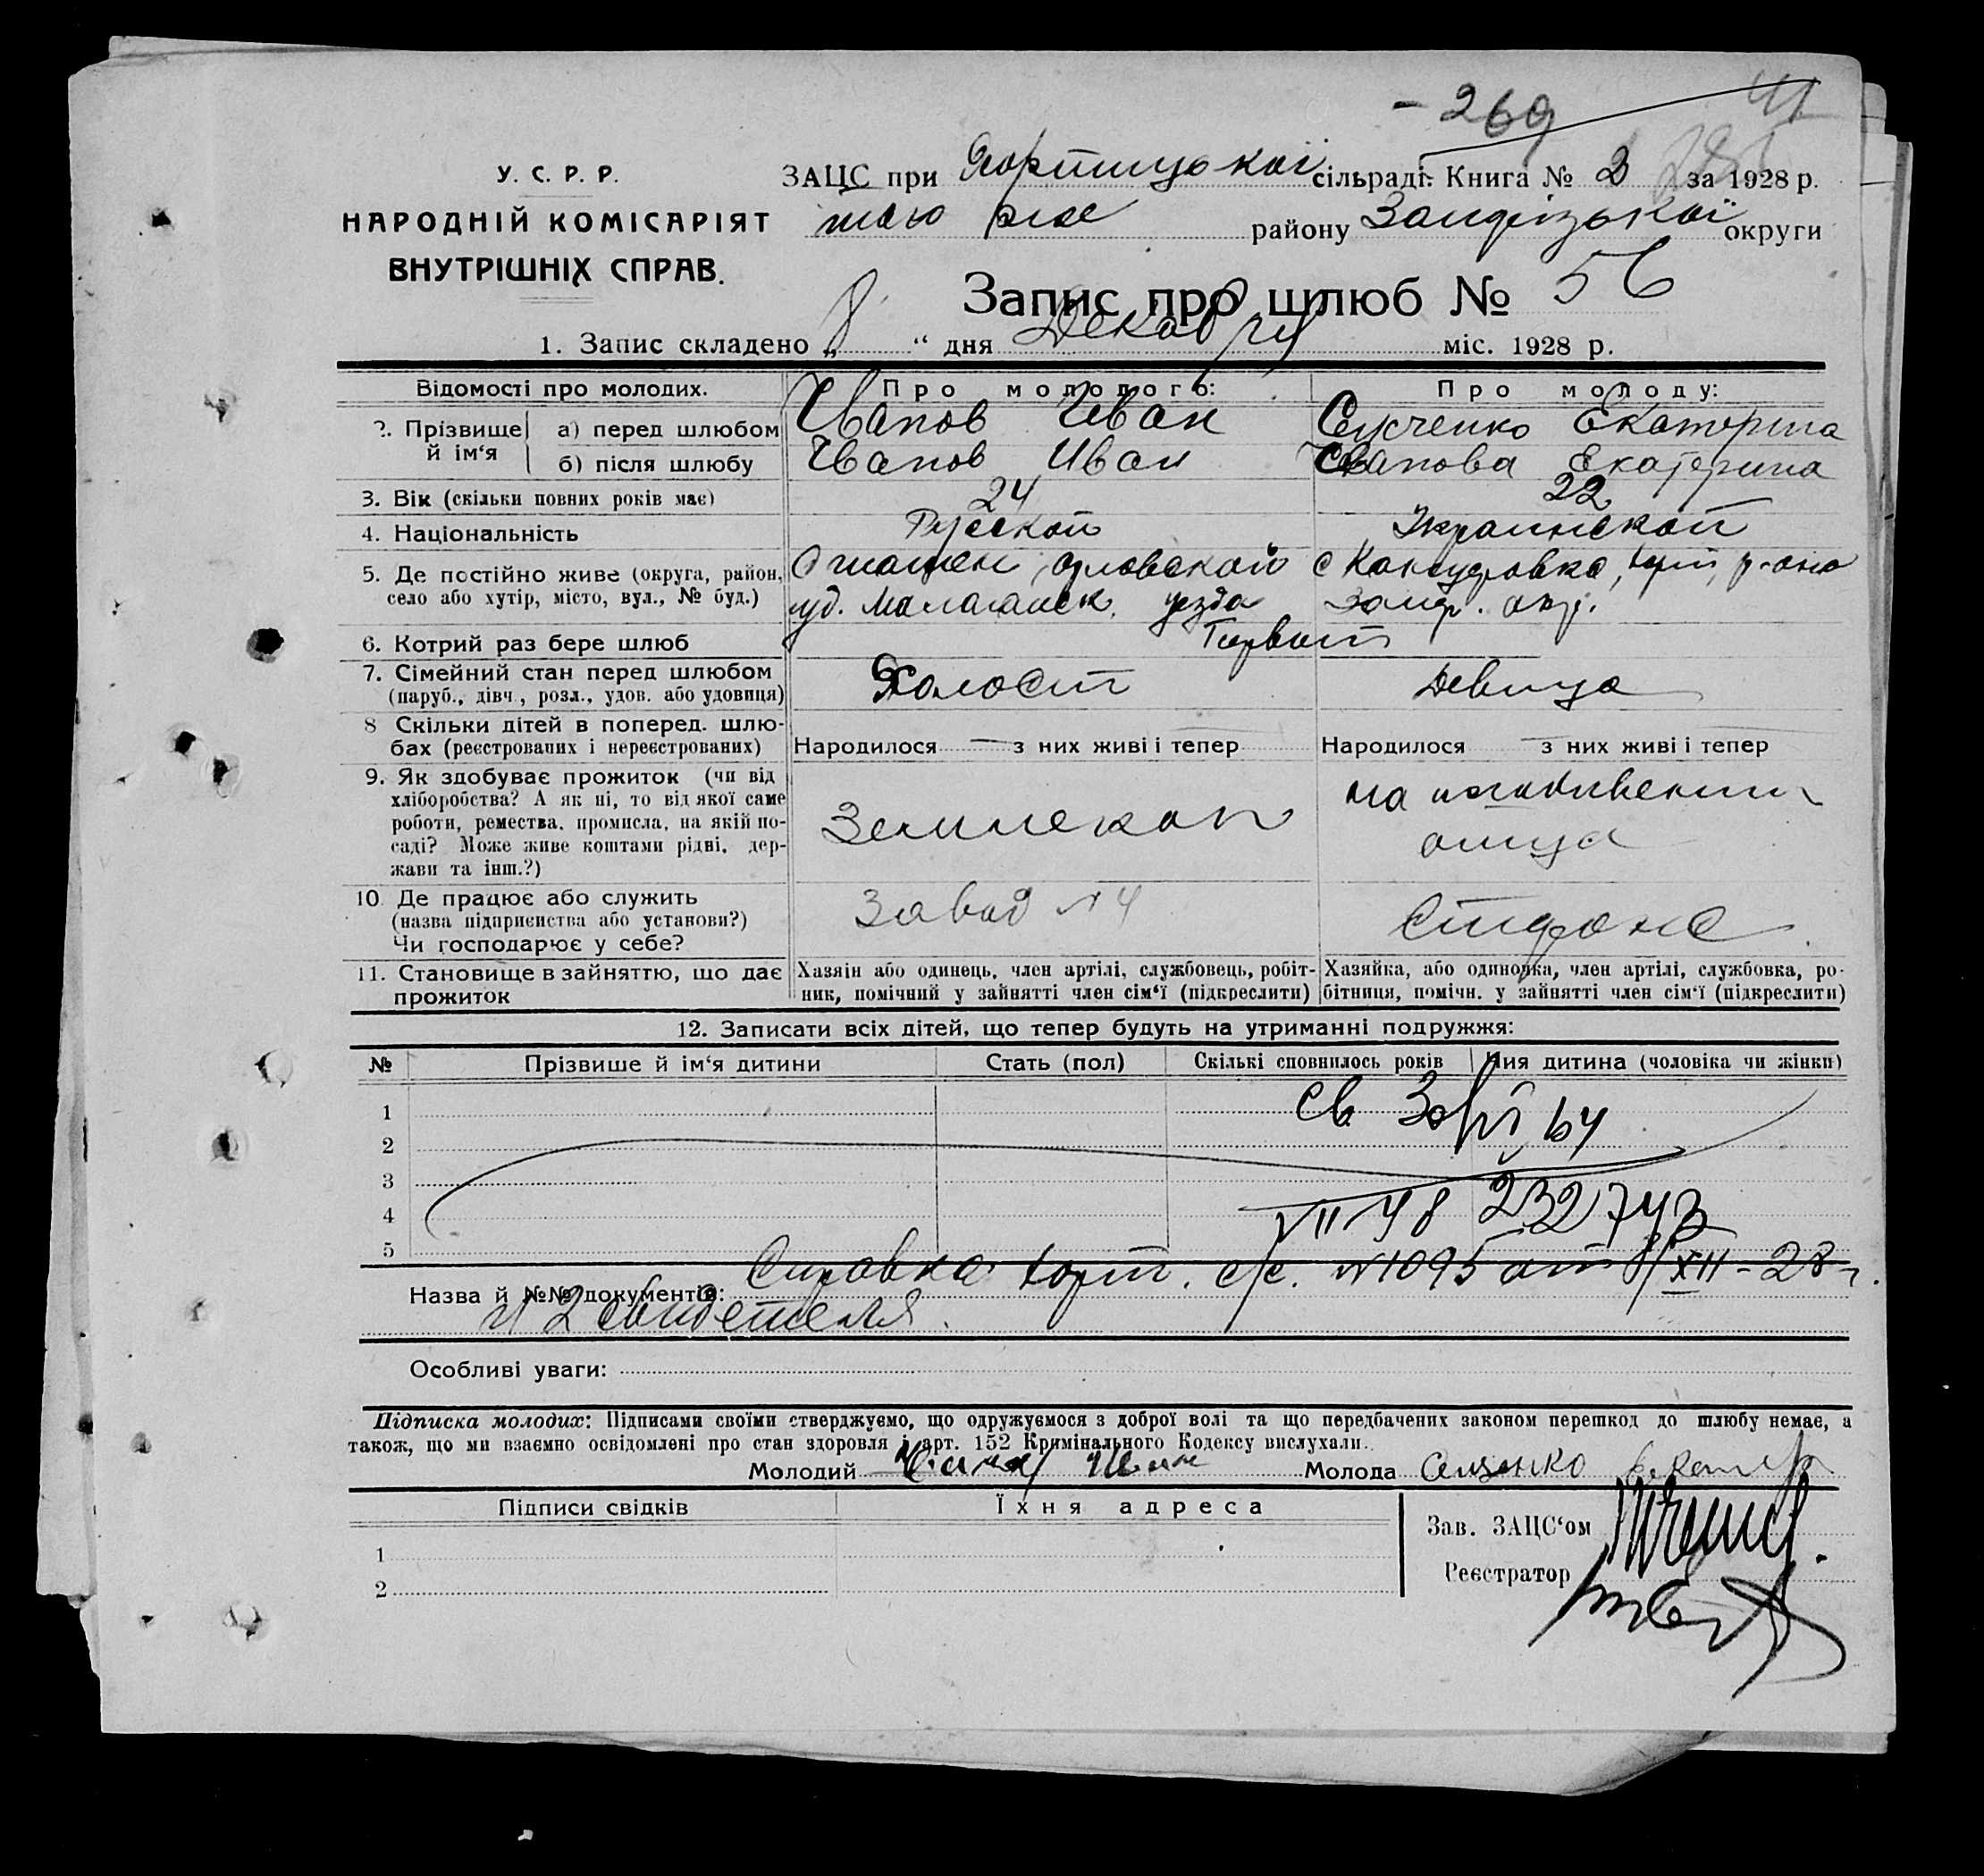 - 269
У. С. Р. Р.
НАРОДНІЙ КОМІСАРІЯТ
ВНУТРІШНІХ СПРАВ.
ЗАЦС при Хортицької сільраді. Книга № 2 за 1928 р.
того ж району Запорізької округи
Запис про шлюб № 56
1. Запис складено „ 8 “ дня Декабря міс. 1928 р.
Відомості про молодих. Про молодого: Про молоду:
2. Прізвище й ім‘я а) перед шлюбом Иванов Иван Екатерина
б) після шлюбу Иванов Иван Иванова Екатерина
3. Вік (скільки повних років має) 24 22
4. Національність Русской Украинской
5. Де постійно живе (округа, район, село або хутір, місто, вул., № буд.) Орловской с Канцеровка, Хорт, р-она
уезда Запор. окр.
6. Котрий раз бере шлюб Первый
7. Сімейний стан перед шлюбом Холост Девица
(паруб., дівч., розл., удов. або удовиця)
8 Скільки дітей в поперед. шлюбах (реєстрованих і нереєстрованих) Народилося — з них живі і тепер Народилося з них живі і тепер
9. Як здобуває прожиток (чи від хліборобства? А як ні, то від якої саме роботи, ремества, промисла, на якій посаді? Може живе коштами рідні, держави та інш.?) Землекоп на иждивении
отца
10 Де працює або служить
(назва підприємства або установи?)
Чи господарює у себе?
Завод №4
11. Становище в зайняттю, що дає прожиток
Хазяін або одинець, член артілі, службовець, робітник, помічний у зайнятті член сім‘ї (підкреслити)
Хазяйка, або одиночка, член артілі, службовка, робітниця, помічн. у зайнятті член сім‘ї (підкреслити)
12. Записати всіх дітей, що тепер будуть на утриманні подружжя:
№ Прізвише й ім‘я дитини Стать (пол) Скількі сповнилось років Чия дитина (чоловіка чи жінки)
1
2
3
4 232743
5
Назва й №№ документів: Справка Хорт. с/с. №1095 от 8/XII-28 г.
и 2 свидетеля.
Особливі уваги:
Підписка молодих: Підписами своїми стверджуємо, що одружуємося з доброї волі та що передбачених законом перешкод до шлюбу немає, а
також, що ми взаємно освідомлені про стан здоровля і арт. 152 Кримінального Кодексу вислухали.
Молодий Иванов Иван Молода
Підписи свідків Їхня адреса
Зав. ЗАЦС‘ом
1
Реєстратор
2